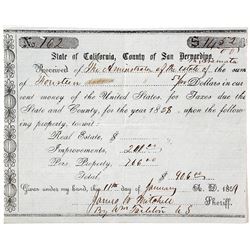 No. 162
State of California, County of San Bernardino.
Received of The Administrator of the estate of the sum
of Dollars in cur-
rent money of the United States, for Taxes due the
State and County, for the year 1858, on the follow-
ing property, to wit:
Real Estate, $
Improvements, 200.00
Pers Property, 706.00
Total, $ 906.00
Given under my hand, this 11th day of January A. D. 1859
James W. Mitchell Sheriff.
By Wm